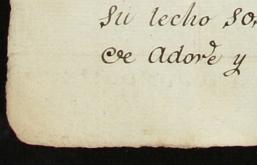 su lecho so
ce Adore y